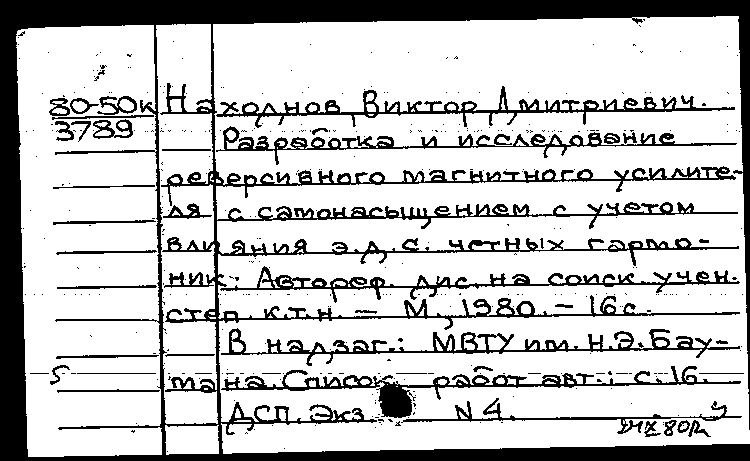 80-50к Находнов, Виктор Дмитриевич.
3789 Разработка и исследование
реверсивного магнитного усилите-
ля с самонасыщением с учетом
влияния э.д.с. четных гармо-
ник: Автореф. дис. на соиск. учен.
степ. к.т.н. — М., 1980. — 16 с.
В надзаг.: МВТУ им. Н.Э. Бау-
5 мана. Список работ авт.: с. 16.
ДСП. Экз N 4.